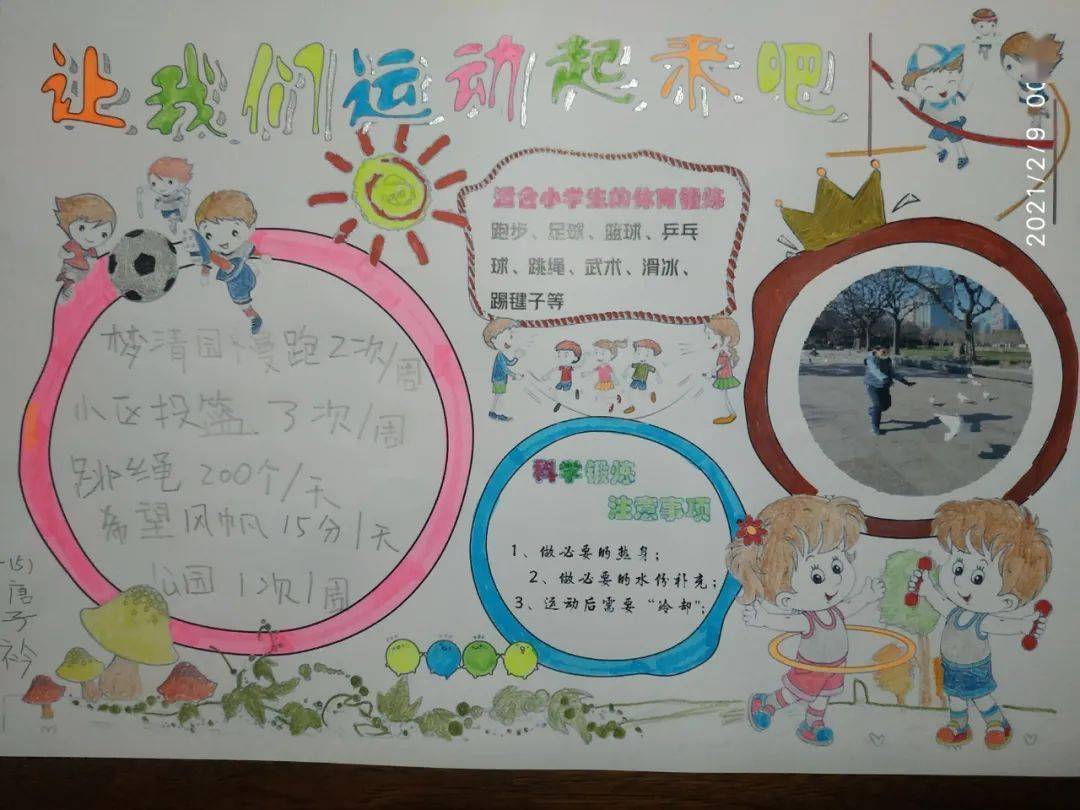 让我们运动起来吧
适合小学生的体育锻炼
跑步、足球、篮球、乒乓
球、跳绳、武术、滑冰、
踢毽子等
梦清园慢跑2次/周
小区投篮 3次/周
跳绳200个/天
希望风帆15分/天
公园1次/周
科学锻炼
注意事项
1、做必要的热身；
2、做必要的水份补充；
3、运动后需要“冷却”；
唐子衿
2021/2/9